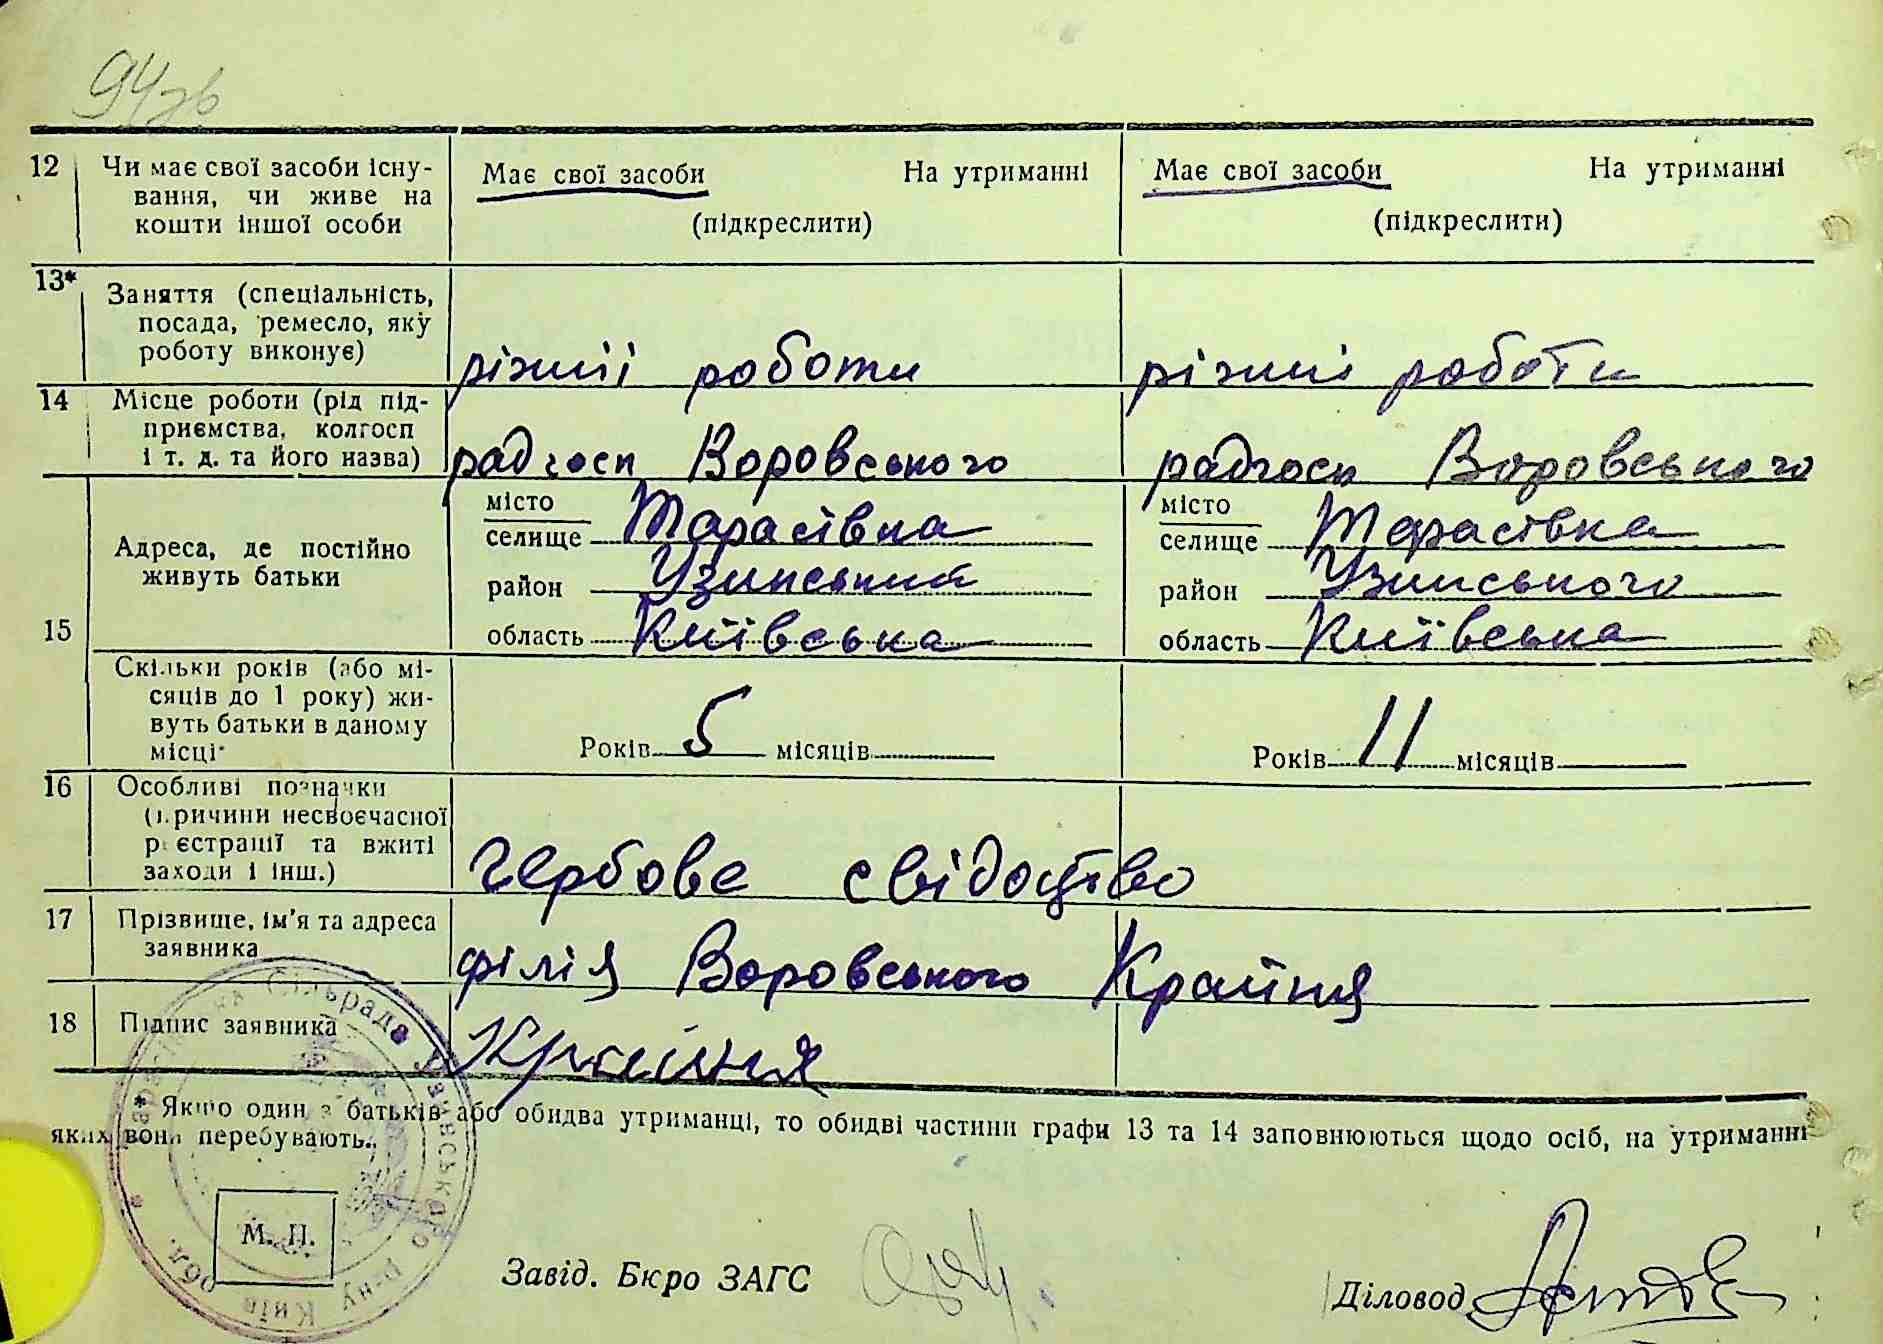 94зв
12 Чи має свої засоби існу-
вання, чи живе на
кошти іншої особи
Має свої засоби На утриманні
(підкреслити)
Має свої засоби На утриманні
(підкреслити)
13* Заняття (спеціальність,
посада, ремесло, яку
роботу виконує)
різнії роботи
різниі роботи
14 Місце роботи (рід під-
приємства, колгосп
і т. д. та його назва)
радгосп Воровського
радгосп Воровського
15 Адреса, де постійно
живуть батьки
місто
селище Тарасівка
район Узинський
область Київська
місто
селище Тарасівка
район Узинського
область Київська
Скільки років (або мі-
сяців до 1 року) жи-
вуть батьки в даному
місці
Років 5 місяців
Років 11 місяців
16 Особливі позначки
(причини несвоєчасної
реєстрації та вжиті
заходи і інш.)
гербове свідоцтво
17 Прізвище, ім'я та адреса
заявника
філія Воровського Крайня
18 Підпис заявника
Крайня
* Якщо один з батьків або обидва утриманці, то обидві частини графи 13 та 14 заповнюються щодо осіб, на утриманні
яких вони перебувають.
Сільрада Узинського р-ну Київ обл.
М. П.
Завід. Бюро ЗАГС
Діловод